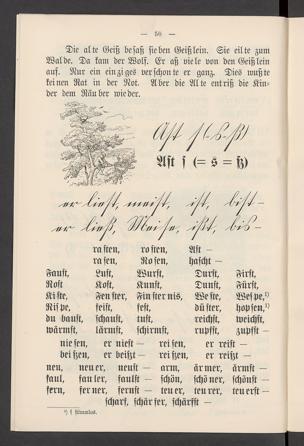 — 50 —
Die alte Geiß besaß sieben Geißlein. Sie eilte zum
Walde. Da kam der Wolf. Er aß viele von den Geißlein
auf. Nur ein einziges verschonte er ganz. Dies wußte
keinen Rat in der Not. Aber die Alte entriß die Kin-
der dem Räuber wieder.
Ast ſ (s, ß)
Aſt ſ (= s = ß)
er liest, meist, ist, bist –
er ließ, Meise, ißt, bis –
rasten, rosten, Ast –
rasen, Rosen, hascht –
Faust, Lust, Wurst, Durst, First,
Rost, Kost, Kunst, Dunst, Fürst,
Kiste, Fenster, Finsternis, Weste, Wespe,¹)
Rispe, feist, fest, düster, hopsen,¹)
du baust, schaust, rufst, reichst, weichst,
wärmst, lärmst, schirmst, rupfst, zupfst –
niesen, er niest – reisen, er reist –
beißen, er beißt – reißen, er reißt –
neu, neuer, neust – arm, ärmer, ärmst –
faul, fauler, faulst – schön, schöner, schönst –
fern, ferner, fernst – teuer, teurer, teuerst –
scharf, schärfer, schärfst –
¹) ſ stimmlos.